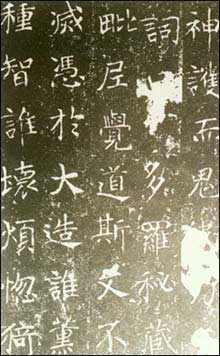 神護而鬼
詞多羅秘藏
毗尼覺道斯文不
滅憑於大造誰薰
種智誰壞煩惱猗